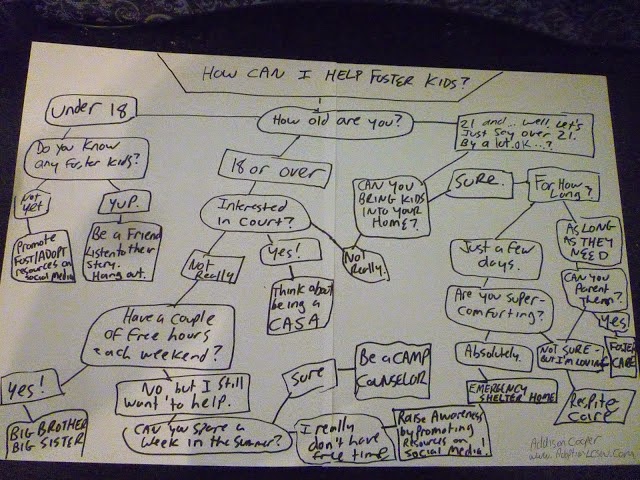 HOW CAN I HELP FOSTER KIDS?
Under 18
How old are you?
21 and... well, let's
Just say over 21.
By a lot. ok...?
Do you know
any foster kids?
18 or over
Not
yet
yup.
Interested
in court?
CAN YOU
BRING KIDS
INTO YOUR
HOME?
SURE.
For How
Long?
Promote
FOST/ADOPT
resources on
Social Media
Be a Friend
Listen to their
Story.
Hang out.
Not
Really
Yes!
Not
Really.
Just a few
days.
AS LONG
AS THEY
NEED
Think about
being a
CASA
Are you super-
comforting?
CAN YOU
Parent
Them?
Yes!
Have a couple
of free hours
each weekend?
Absolutely.
NOT SURE -
BUT I'M LOVING
FOSTER
CARE
Yes!
No but I still
want to help.
Sure
Be a CAMP
COUNSELOR
EMERGENCY
SHELTER HOME
Respite
Care
BIG BROTHER
BIG SISTER
CAN YOU Spare a
Week in the Summer?
I really
don't have
free time
Raise Awareness
by Promoting
Resources on
Social Media!
Addison Cooper
www.AdoptionLCSW.com